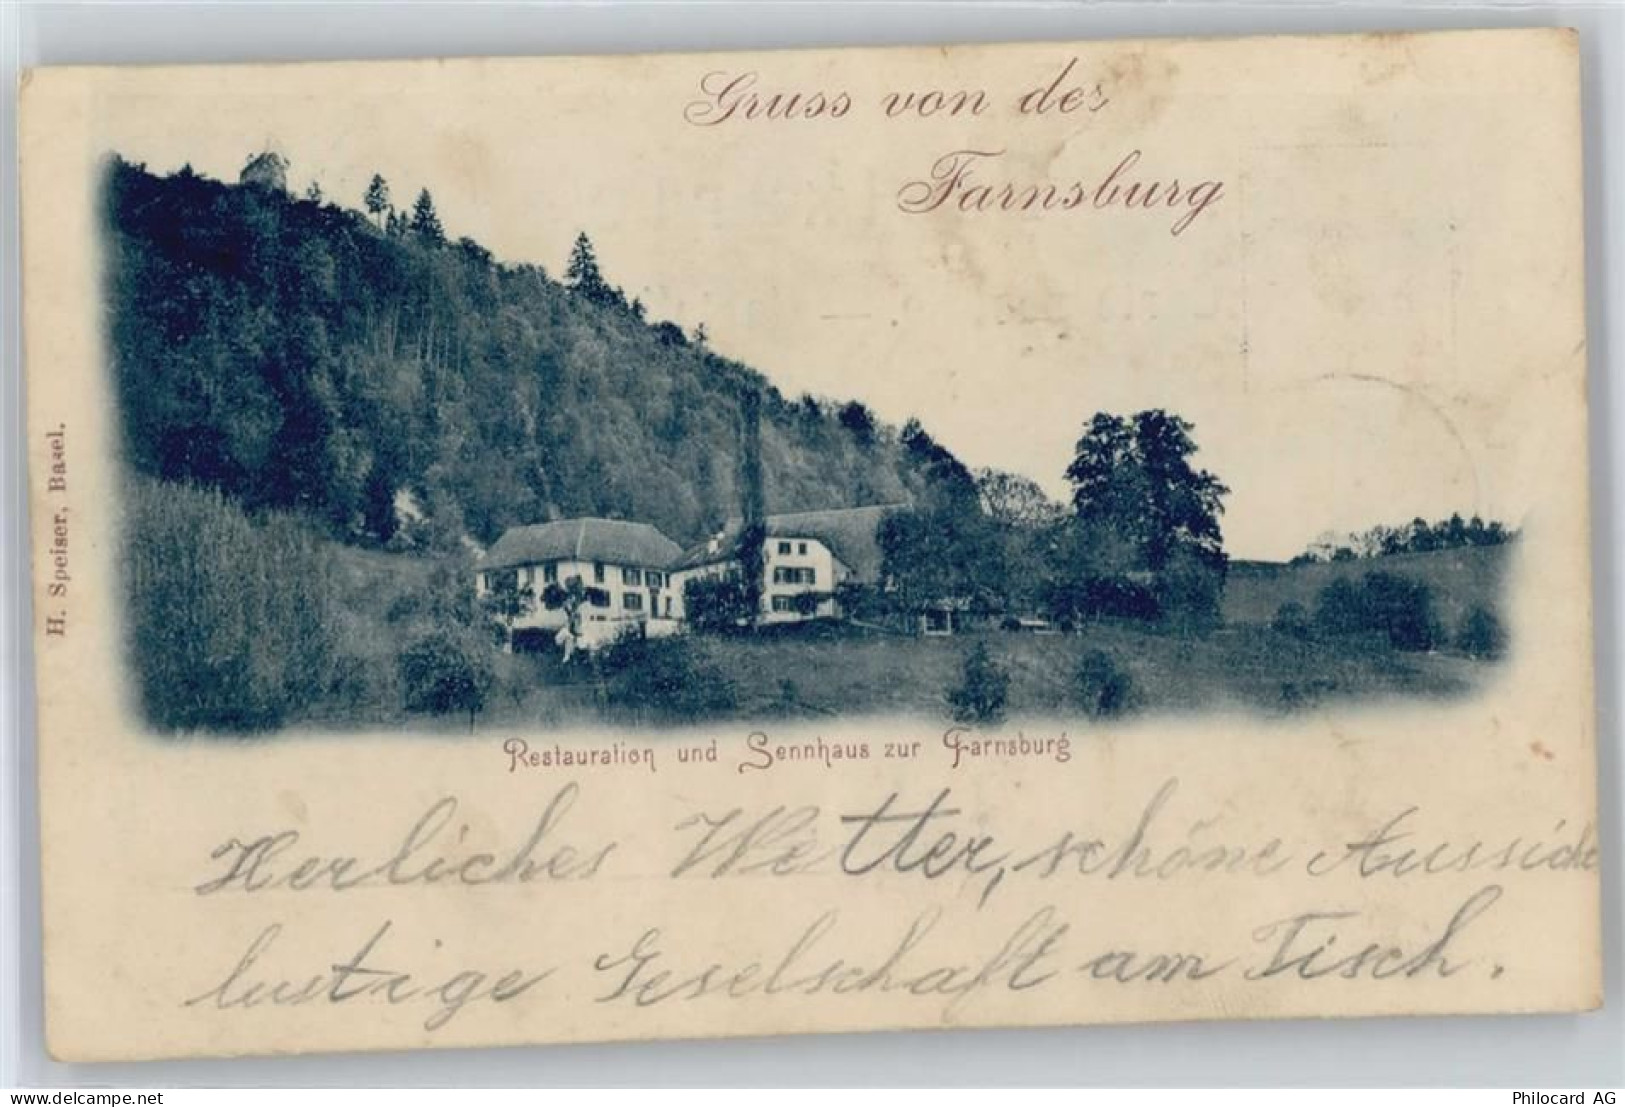 Gruss von der
Farnsburg
H. Speiser, Basel.
Restauration und Sennhaus zur Farnsburg
Herliches Wetter, schöne Aussicht
lustige Geselschaft am Tisch.
delcampe.net
Philocard AG